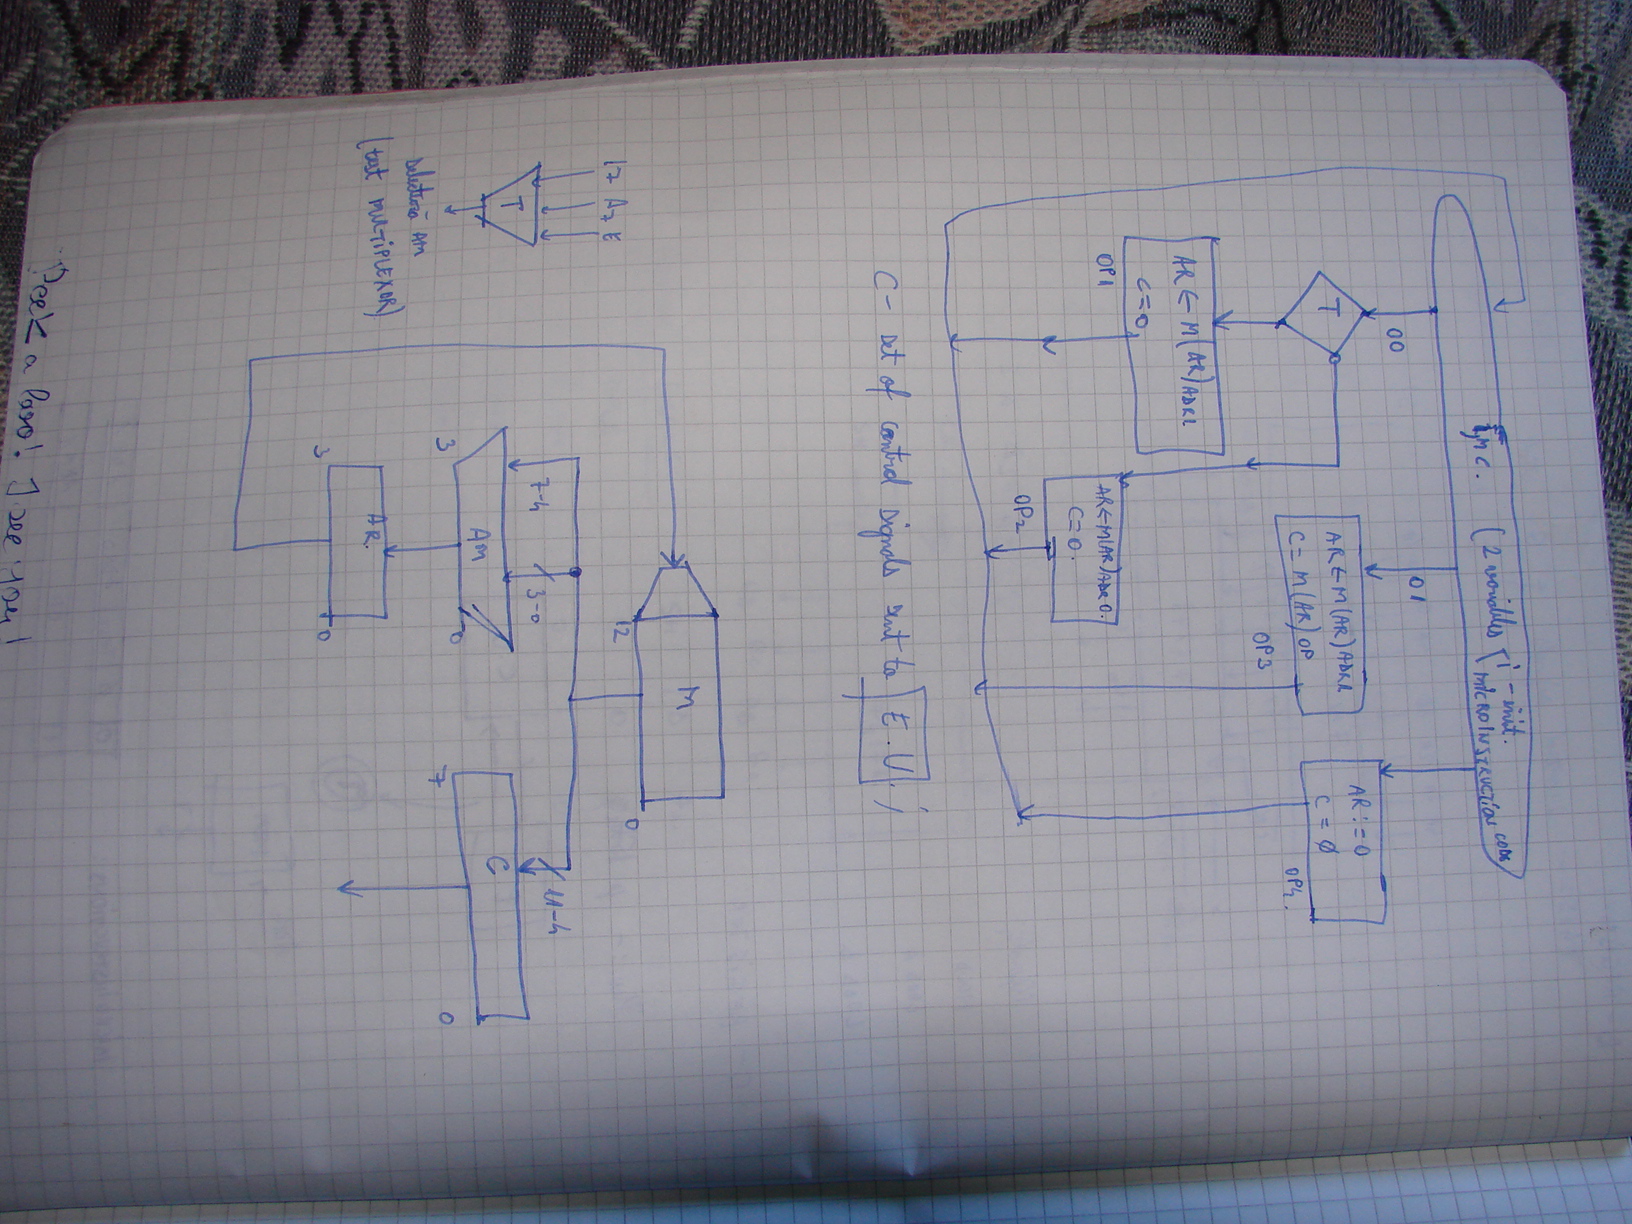 sync. (2 variables { i - init.
MICROINSTRUCTION CODE
00
01
T
AR ← M(AR)ADR1
C = 0,
OP1
AR ← M(AR)ADR0.
C = 0.
OP2
AR ← M(AR)ADR1
C = M(AR)OP
OP3
AR := 0
C = Ø
OP4.
C - set of control signals sent to E.U.
I7 A7 E
T
AM
(test MULTIPLEXOR)
M
12
0
7-4
3-0
11-4
AM
3
0
AR.
3
0
C
7
0
Peek a boo! I see you!